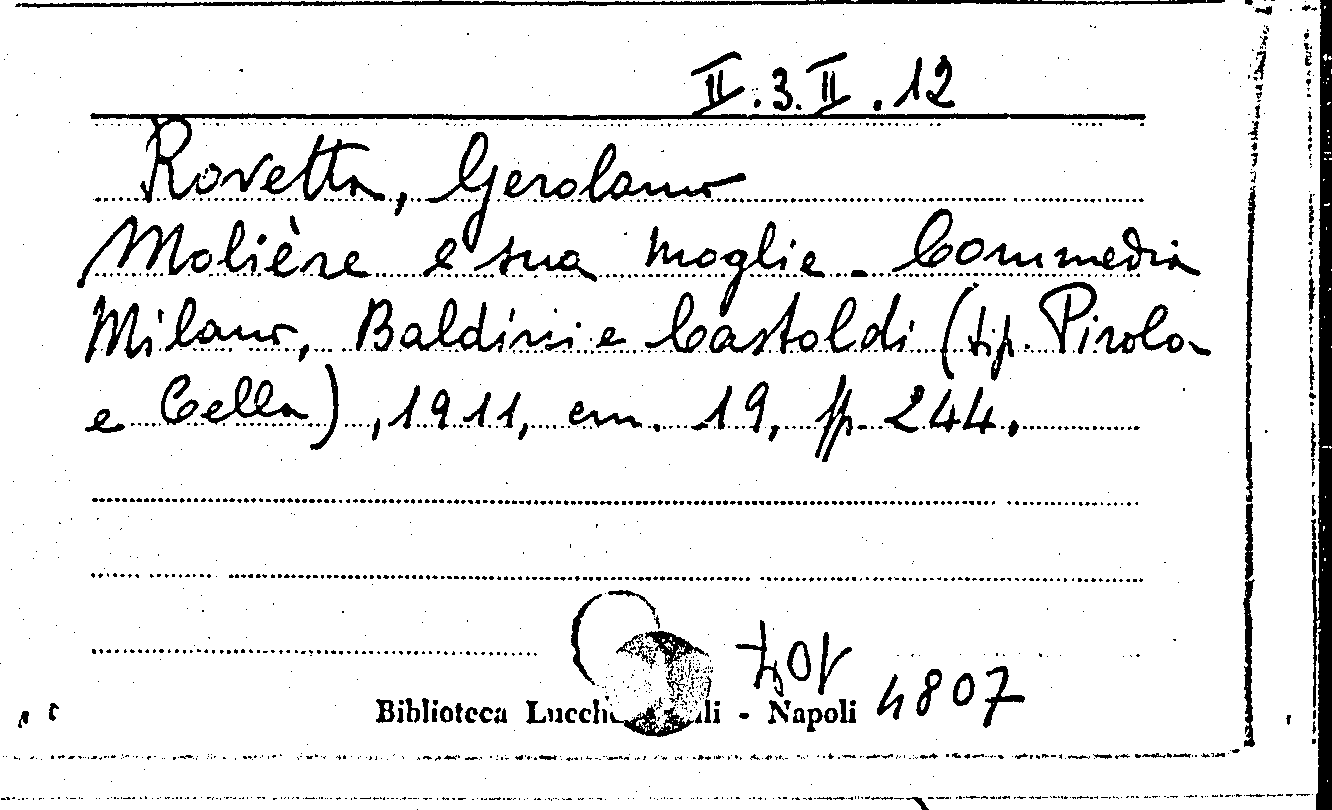 II.3.II.12
Rovetta, Gerolamo
Molière e sua moglie - Commedia
Milano, Baldini e Castoldi (tip. Pirola
e Cella), 1911, cm. 19, pp. 244.
Biblioteca - Napoli 4807